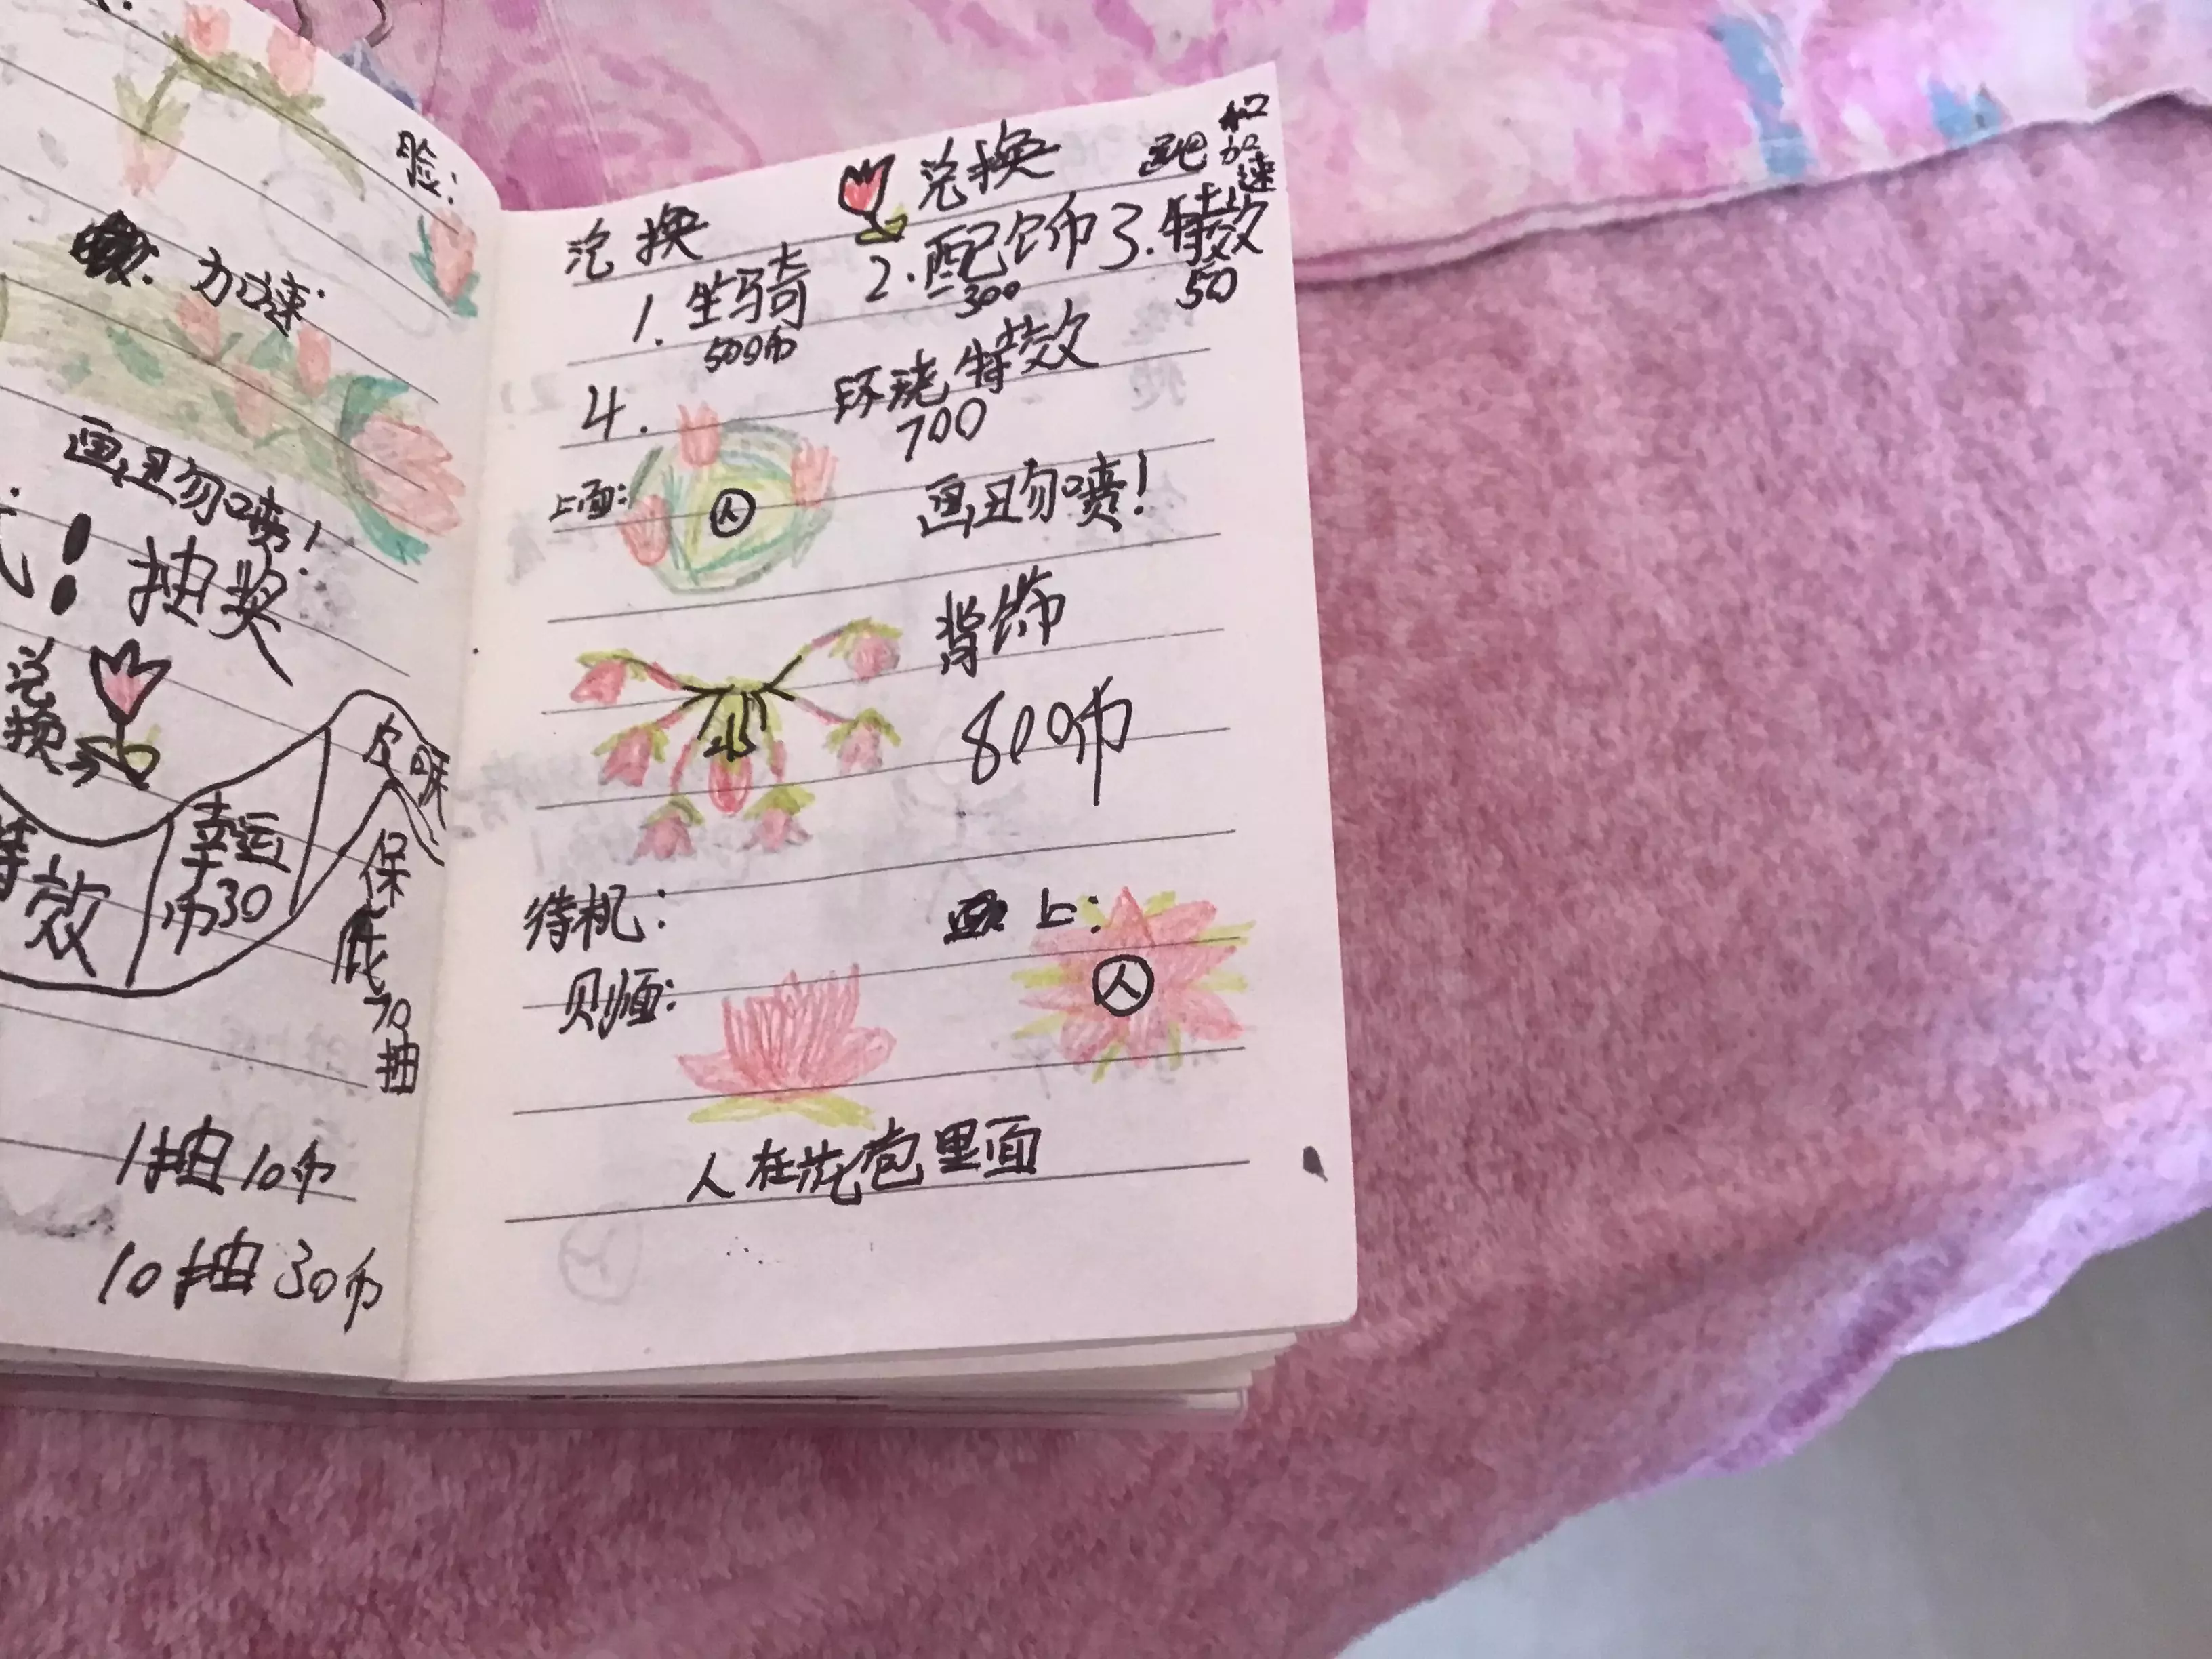 脸：
加速
画丑勿喷！
！抽奖
兑换
皮肤
幸运币30
效
保底70抽
1抽10币
10抽30币
兑换 兑换 和加速
1.坐骑 2.配饰 3.特效
500币 300 50
4. 环绕特效
700
上面： 人 画丑勿喷！
背饰
800币
待机： 上：
则面： 人
人在花苞里面